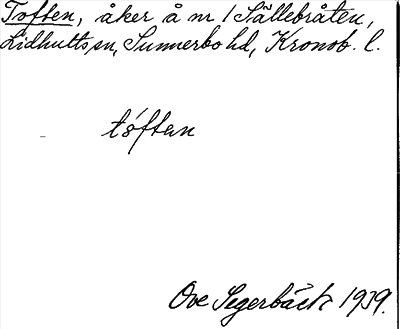 Toften, åker å nr 1 Sällebråten,
Lidhults sn, Sunnerbo hd, Kronob. l.
tóftan
Ove Segerbäck 1939.